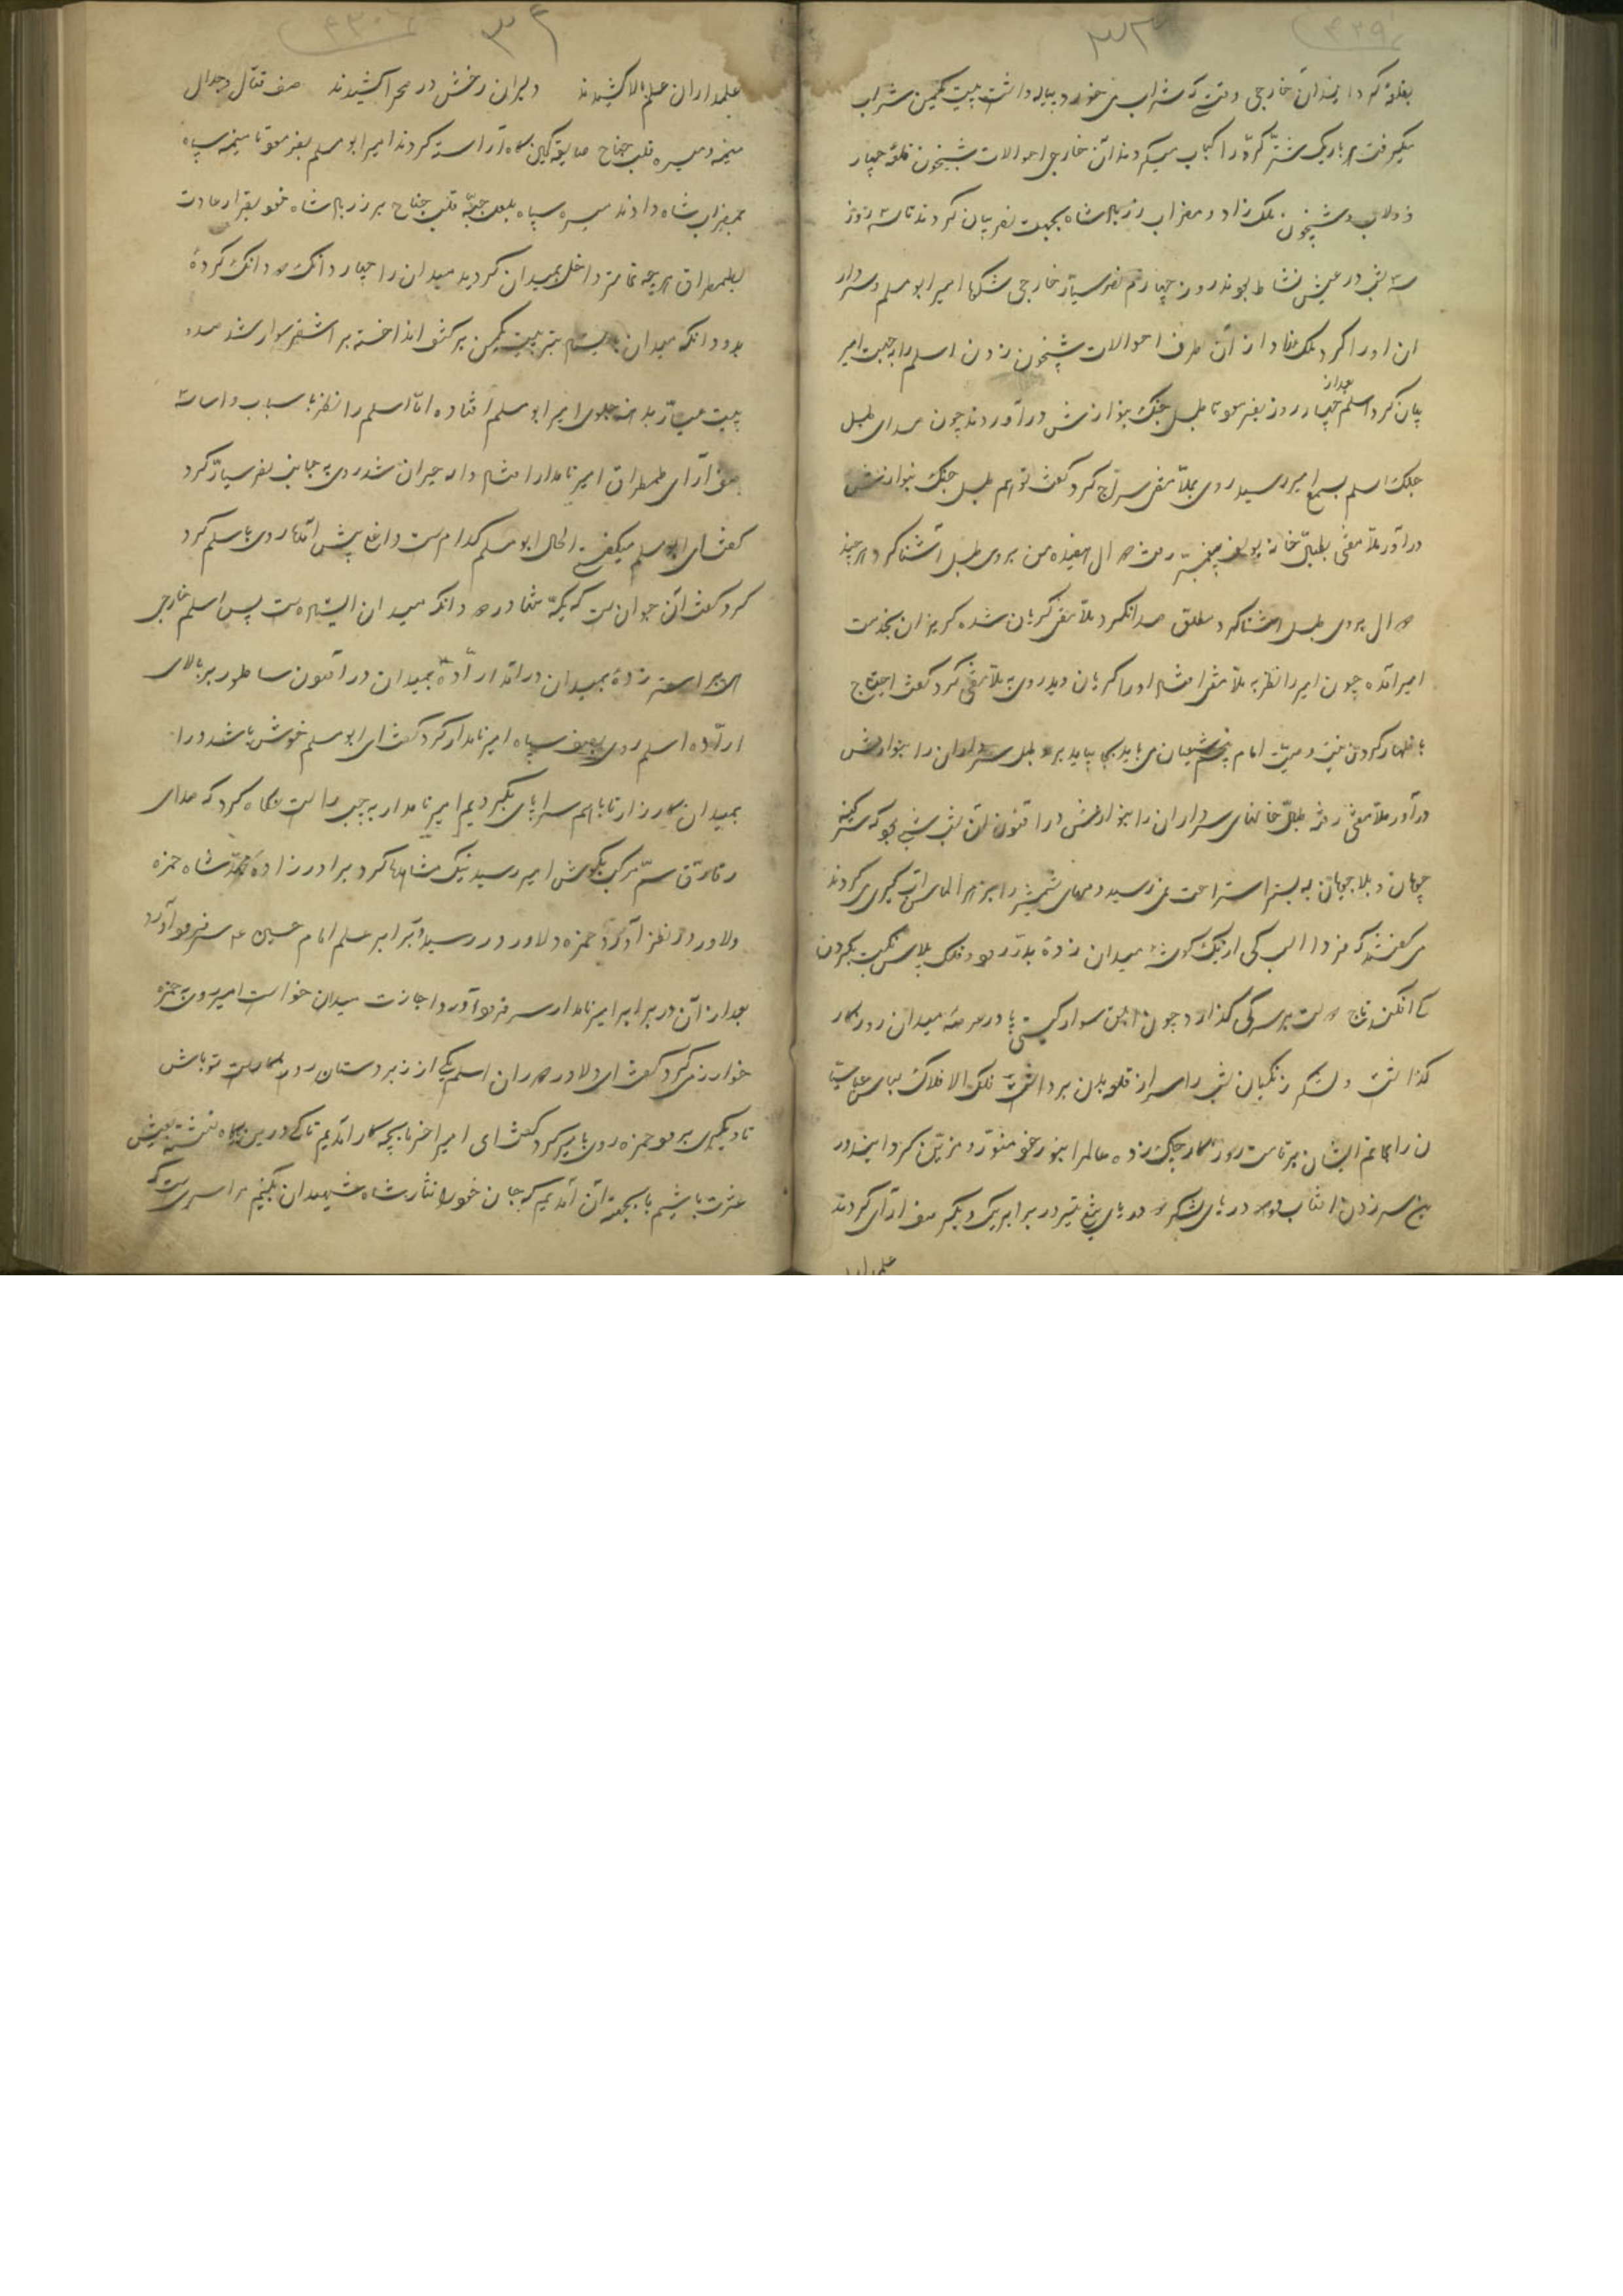 بغلوه کردانیدان خارجی وقتی که شراب می خورد پیاله داشت بیست یکمن شراب
میگرفت هر باریک شتر کره را کباب میکردند آن خارجی احوالات شبیخون قلعه چهار
دولاب و شبیخون ملک زاد و مضراب رزبال شاه بجهت نصر بیان کردند تا سه روز
سه شب در عیش نشاط بودند روز چهارم نصر سیار خارجی امیر ابومسلم و سردار
ان اورا کرد از آن طرف احوالات شبیخون زدن اسلم را بجهت امیر
بیان کرد اسلم بعد از چهار روز بفرمود تا طبل جنگ بنوازش درآوردند چون صدای طبل
جنگ اسلم بسمع امیر رسید روی بملا مغی سراج کرد گفت تو هم طبل جنگ بنوازش
درآور ملا مغی بطبل خانه رفت دوال من بروی طبل آشنا کرد هر چند
دوال بروی طبل آشنا کرد مطلق صدا نکرد ملا مغی گریان شده گریزان بخدمت
امیر آمده چون امیر را نظر به ملا مغی افتاد اورا گریان دید روی به ملا مغی کرد گفت احتیاج
باظهار کردن نیست وصیت امام شیعیان می باید بجا بیاید برو طبل سرداران را بنوازش
درآور ملا مغی رفته طبل خانهای سرداران را بنوازش درآورد آن شب شبی بود که ستر کینه
جویان و بلا جویان به بستر استراحت نمی رسید دمهای شمشیر را بزهر الماس آب گیری می کردند
می گفتند که فردا اسب کی از یک گوشه میدان زده بدر رود و فلک پلاس نکبت بگردن
کی افکند تاج دولت بر سر کی گذارد چون سوار گیتی پا در عرصه میدان روزگار
گذاشت و لشکر زنگیان شب را سر از قلعه بدن برداشت فلک الافلاک لباس عباسیا
ن را بماتم ایشان بر قامت روزگار چاک زده عالم را بنور خود منور و مزین کردانید در
تیغ سر زدن آفتاب دو دریای لشکر دو دریای تیغ تیز در برابر یک دیگر صف آرای کردند
علمدارا
علمداران علم بالا کشیدند دلیران رخش در صحرا کشیدند صف قتال و جدال
میمنه و میسره قلب جناح ساقه کمین گاه آراسته کردند امیر ابومسلم بفرمود تا میمنه سپاه
بمضراب شاه دادند میسره سپاه قلب جناح بر رزبال شاه خود بقرار عادت
بطمطراق هر چه تمامتر داخل میدان گردید میدان را چهار دانگ دو دانگ کرده
بدو دانگ میدان تبر بیست یکمن بر کتف انداخته بر اشقر سوار شد صد
بیست عیار در جلوی امیر ابومسلم افتاده اما اسلم را نظر باسباب و اساسه
صف آرای طمطراق امیر نامدار افتاد واله حیران شد روی بجانب نصر سیار کرد
گفت ای ابومسلم میگفتی الحال ابومسلم کدام است پیش آمد روی باسلم کرد
کرد گفت آن جوان است که یکه تنها در دو دانگ میدان ایستاده است پس اسلم خارجی
زده بمیدان درآمد اراده بمیدان درآمدن ساطور بر بالای
اراده اسلم روی بصف سپاه امیر نامدار کرد گفت ای ابومسلم خوش باشد درا
بمیدان کارزار تا باهم سراپای بگردیم امیر نامدار به چپ راست نگاه کرد که صدای
رقارق سم مرکب بگوش امیر رسید نیک مشاهده کرد برادر زاده محمد شاه حمزه
دلاور در نظر آمد حمزه دلاور در رسید برابر علم امام حسین ع سر فرود آورد
بعد از آن در برابر امیر نامدار سر فرود آورد اجازت میدان خواست امیر روی به حمزه
خوارزمی کرد گفت ای دلاور دوران اسلم یکی از زبردستان روزگار است تو باش
تا دیگری برود حمزه روی بامیر کرد گفت ای امیر اخر ما بچه کار آمدیم تا کی درین گاه نشسته بعیش
عشرت باشیم ما بجهت آن آمدیم که جان خود را نثار شاه شهیدان بکنیم